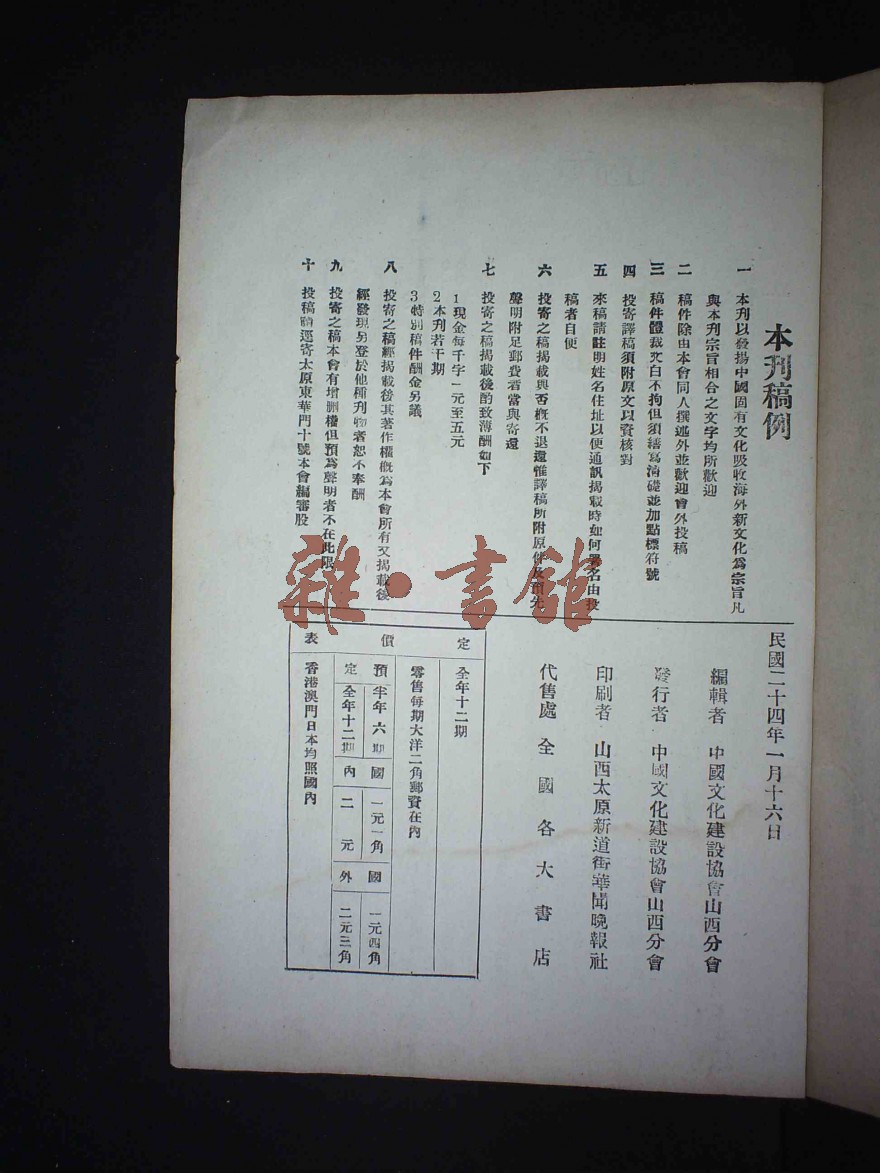 本刊稿例
一 本刊以發揚中國固有文化吸收海外新文化爲宗旨凡
與本刊宗旨相合之文字均所歡迎
二 稿件除由本會同人撰述外並歡迎會外投稿
三 稿件體裁文白不拘但須繕寫清礎並加點標符號
四 投寄譯稿須附原文以資核對
五 來稿請註明姓名住址以便通訊揭載時如何署名由投
稿者自便
六 投寄之稿揭載與否概不退還惟譯稿所附原件及預先
聲明附足郵費者當與寄還
七 投寄之稿揭載後酌致薄酬如下
1現金每千字一元至五元
2本刊若干期
3特別稿件酬金另議
八 投寄之稿經揭載後其著作權概爲本會所有又揭載後
經發現另登於他種刊物者恕不奉酬
九 投寄之稿本會有增刪權但預爲聲明者不在此限
十 投稿請逕寄太原東華門十號本會編審股
民國二十四年一月十六日
編輯者 中國文化建設協會山西分會
發行者 中國文化建設協會山西分會
印刷者 山西太原新道街華聞晚報社
代售處 全國各大書店
定價表
全年十二期
零售每期大洋二角郵費在內
預定
半年六期 國內 一元一角 國外 一元四角
全年十二期 二元 二元三角
香港澳門日本均照國內
雜·書館